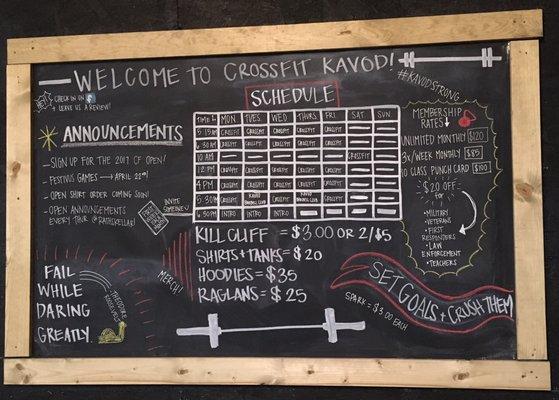 WELCOME TO CROSSFIT KAVOD!
#KAVODSTRONG
CHECK IN ON f
+ LEAVE US A REVIEW!
ANNOUNCEMENTS
-SIGN UP FOR THE 2017 CF OPEN!
- FESTIVUS GAMES → APRIL 22ND!
- OPEN SHIRT ORDER COMING SOON!
- OPEN ANNOUNCEMENTS
EVERY THUR @ RATHSKELLAR!
INVITE
SOMEONE
SCHEDULE
TIME MON TUES WED THURS FRI SAT SUN
5:15AM CROSSFIT CROSSFIT CROSSFIT CROSSFIT CROSSFIT
6:30AM CROSSFIT CROSSFIT CROSSFIT CROSSFIT CROSSFIT
10 AM CROSSFIT
12 PM CROSSFIT CROSSFIT CROSSFIT CROSSFIT CROSSFIT
4 PM CROSSFIT CROSSFIT CROSSFIT CROSSFIT CROSSFIT
5:30PM CROSSFIT CROSSFIT CROSSFIT CROSSFIT CROSSFIT
6:30PM INTRO INTRO INTRO
MEMBERSHIP
RATES
UNLIMITED MONTHLY $120
3x/WEEK MONTHLY $85
10 CLASS PUNCH CARD $100
$20 OFF
FOR
- MILITARY
- VETERANS
- FIRST
RESPONDERS
- LAW
ENFORCEMENT
- TEACHERS
KILL CLIFF = $3.00 OR 2/$5
SHIRTS + TANKS = $20
HOODIES = $35
RAGLANS = $25
MERCH!
SPARK = $3.00 EACH
FAIL
WHILE
DARING
GREATLY.
THEODORE
ROOSEVELT
SET GOALS + CRUSH THEM